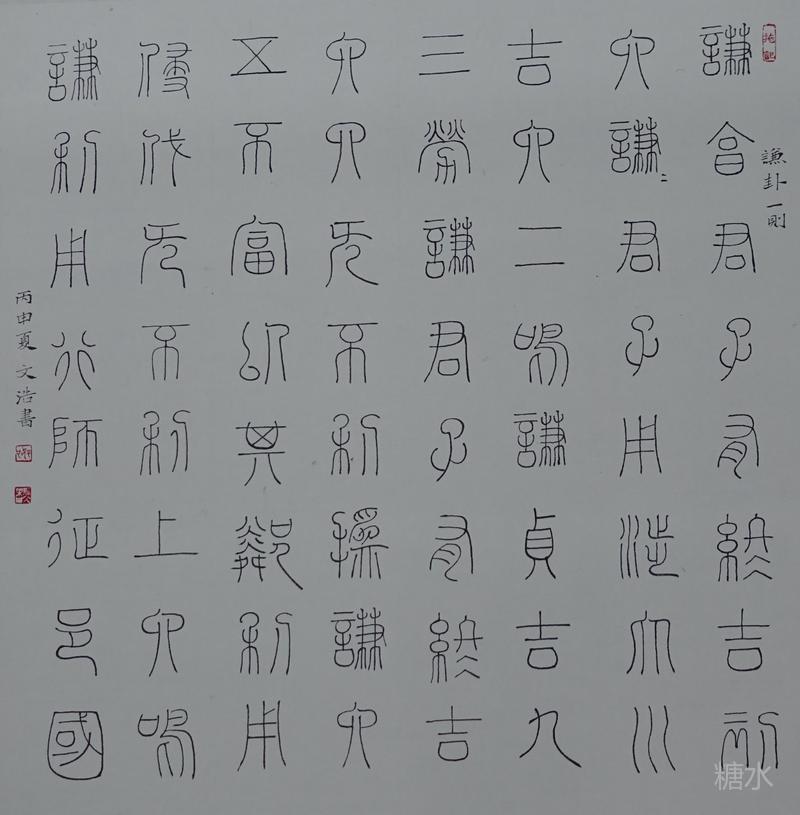 謙卦一則
謙亨君子有終吉初
六謙=君子用涉大川
吉六二鳴謙貞吉九
三勞謙君子有終吉
六四无不利撝謙六
五不富以其鄰利用
侵伐无不利上六鳴
謙利用行師征邑國
丙申夏文浩書
糖水